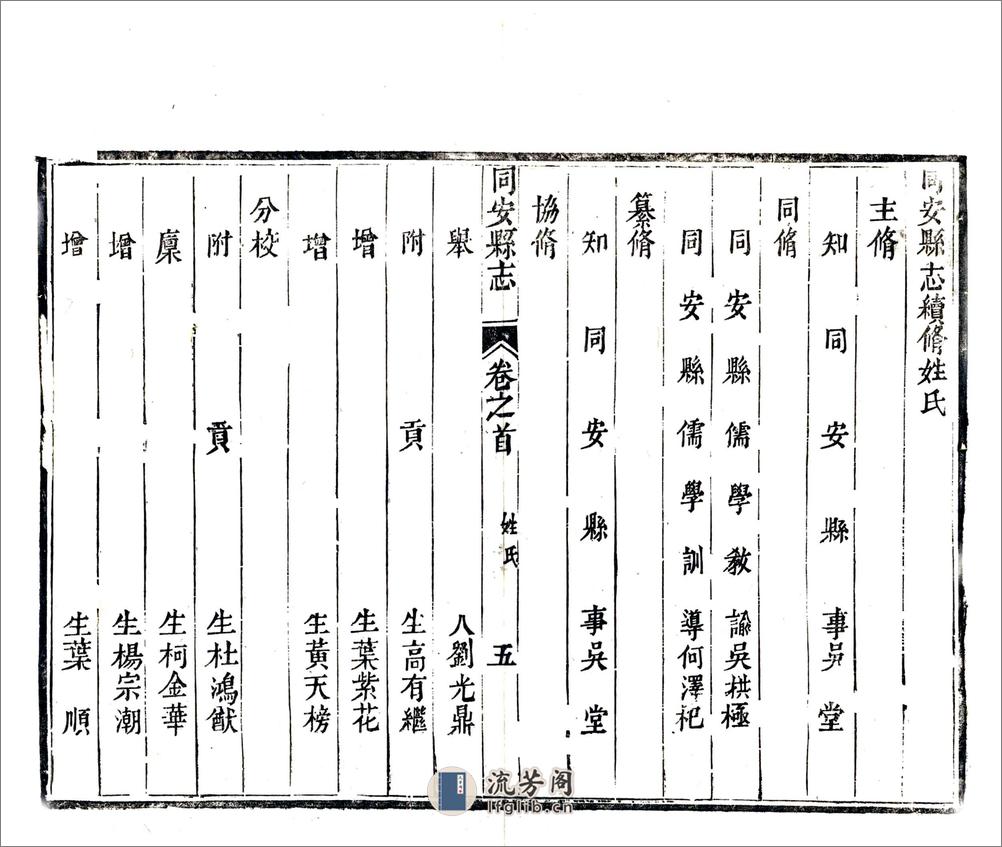 同安縣志續脩姓氏
主脩
知同安縣事吳堂
同脩
同安縣儒學教諭吳栱極
同安縣儒學訓導何澤祀
纂脩
知同安縣事吳堂
協脩
舉人劉光鼎
同安縣志 卷之首 姓氏 五
附貢生高有繼
增生葉紫花
增生黃天榜
分校
附貢生杜鴻猷
廩生柯金華
增生楊宗潮
增生葉順
流芳阁
lfglib.cn